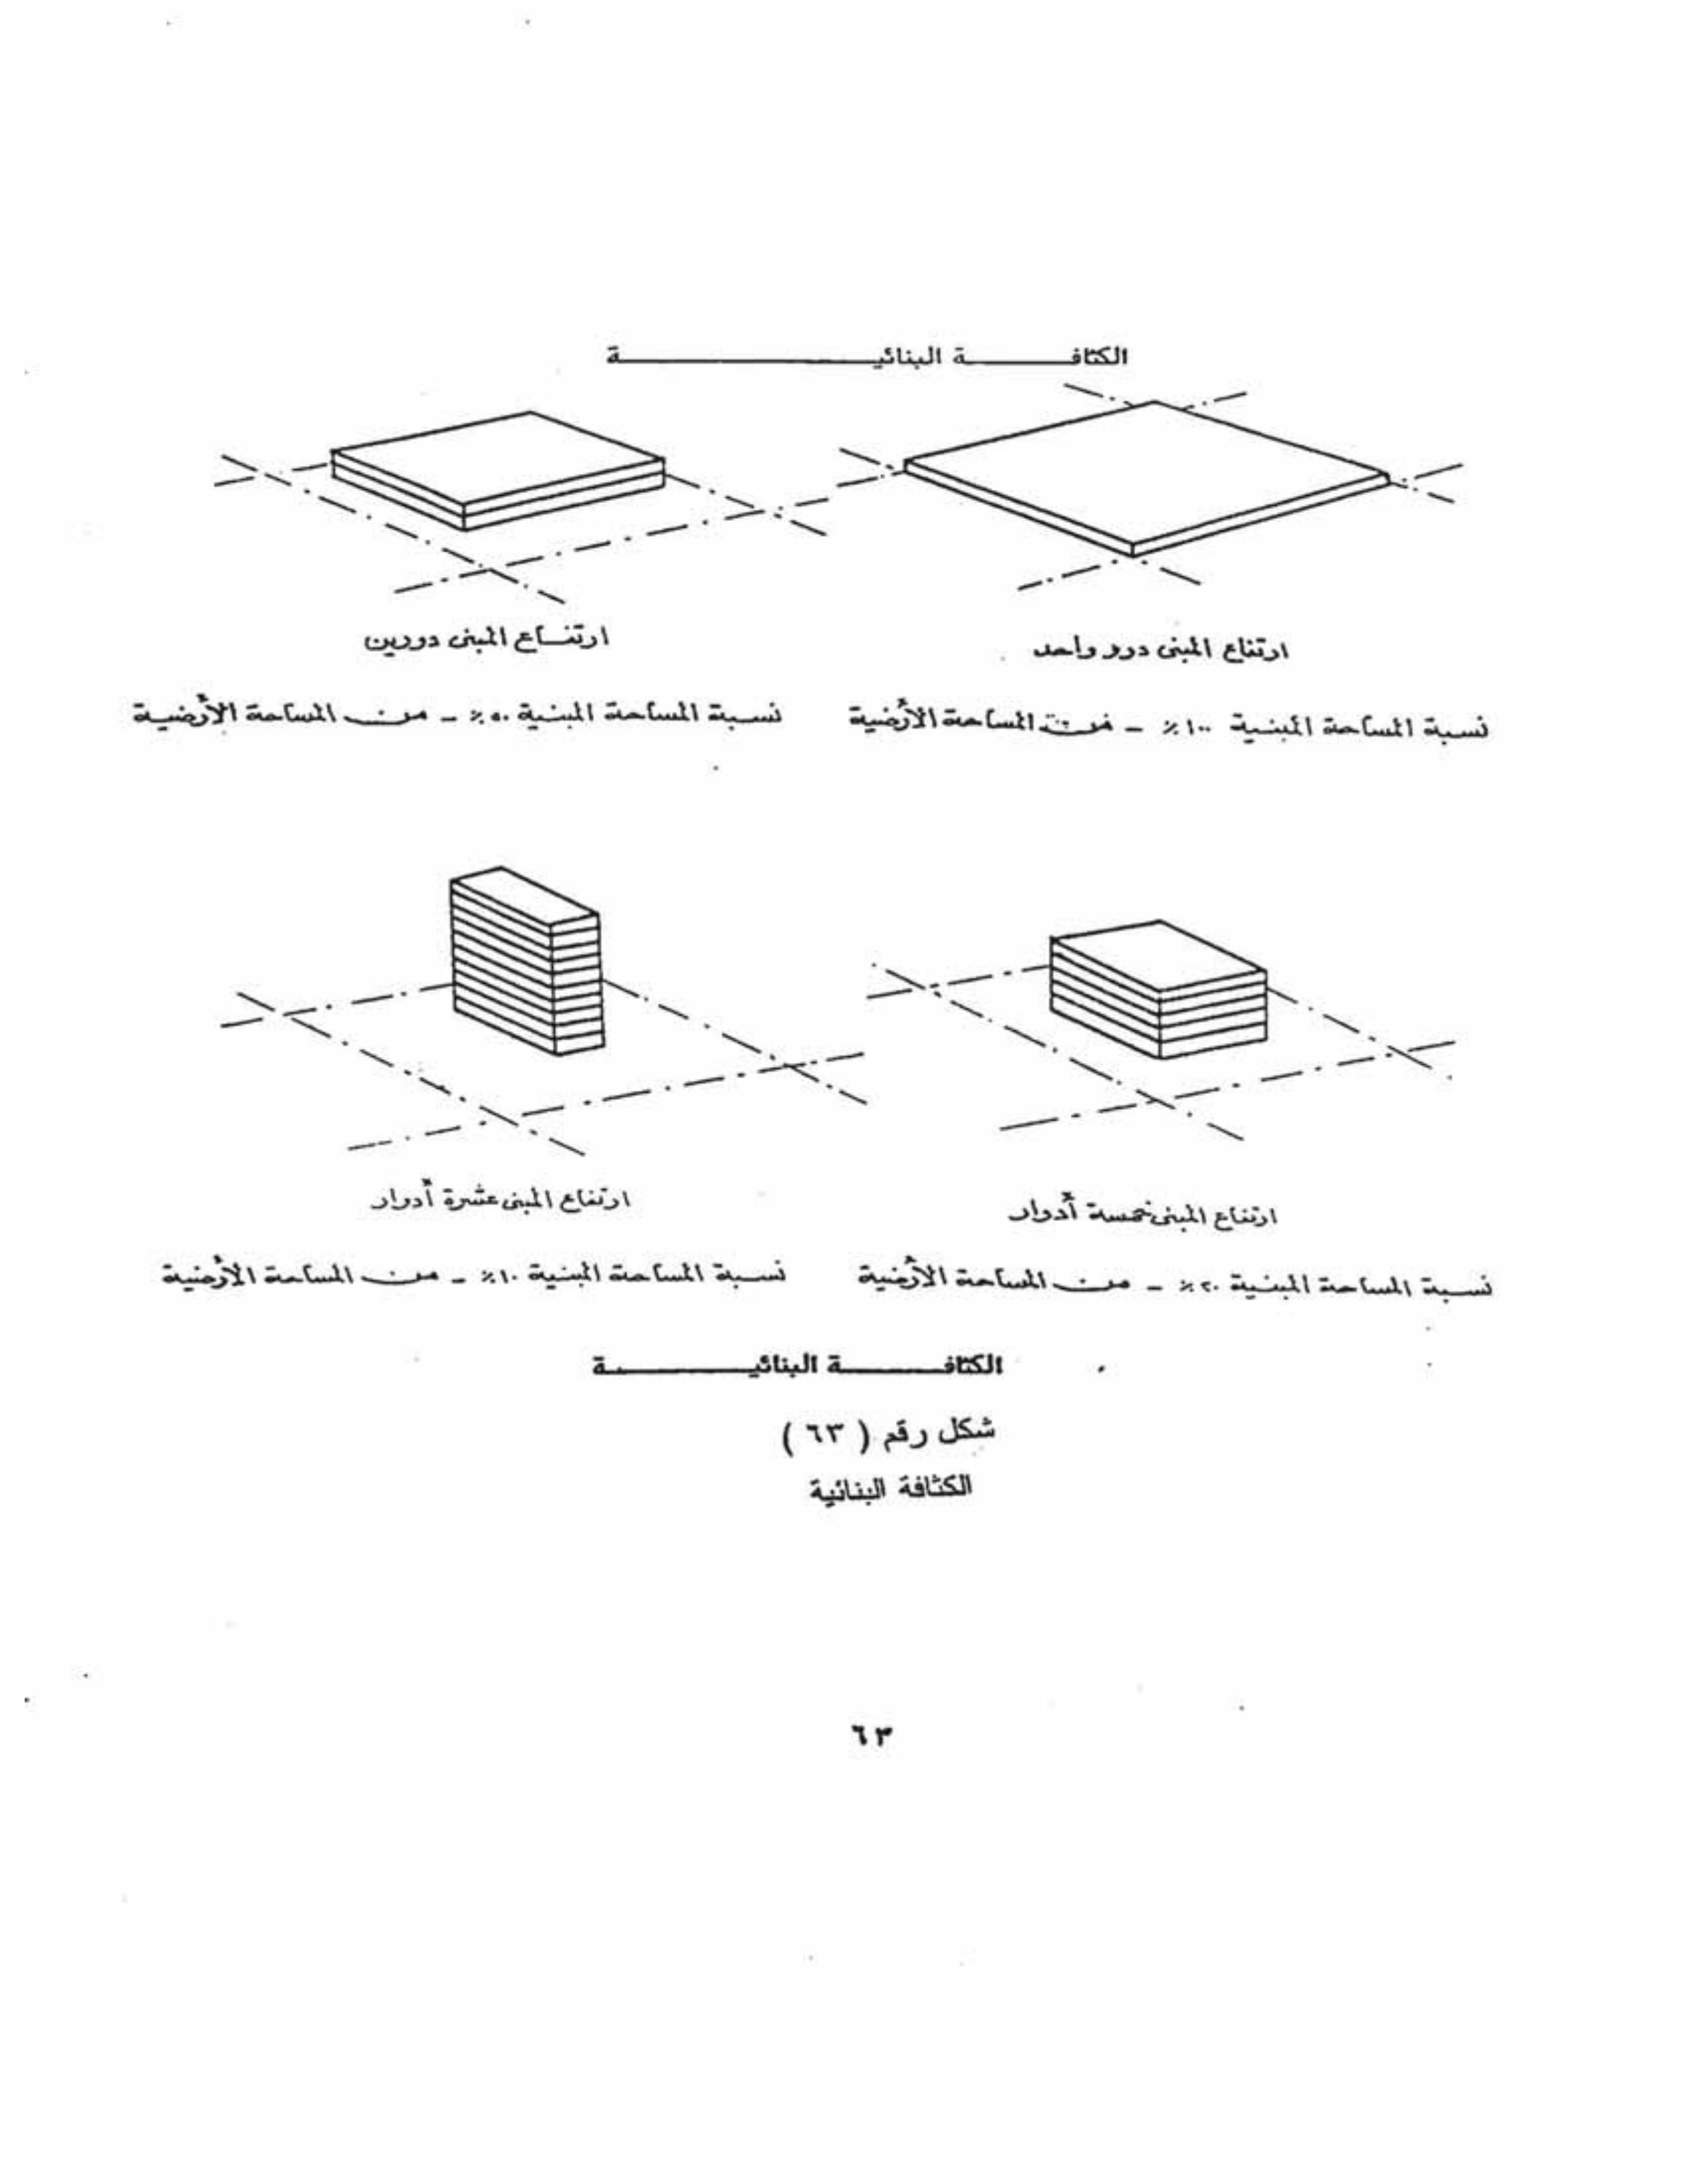 الكثافة البنائية
ارتفاع المبنى دور واحد
ارتفاع المبنى دورين
نسبة المساحة المبنية ١٠٠٪ - من المساحة الأرضية
نسبة المساحة المبنية ٥٠٪ - من المساحة الأرضية
ارتفاع المبنى خمسة أدوار
ارتفاع المبنى عشرة أدوار
نسبة المساحة المبنية ٢٠٪ - من المساحة الأرضية
نسبة المساحة المبنية ١٠٪ - من المساحة الأرضية
الكثافة البنائية
شكل رقم ( ٦٣ )
الكثافة البنائية
٦٣